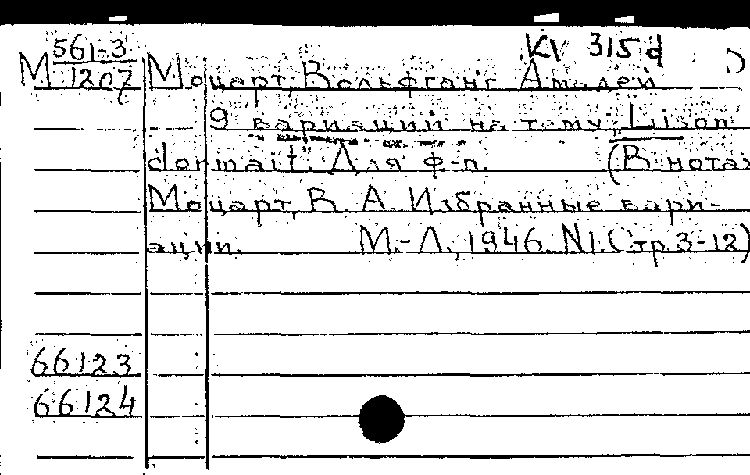 KV 315d
М 561-3/1207 Моцарт, Вольфганг Амадей
9 вариаций на тему: Lison
dormait. Для ф-п. (В нотах
Моцарт, В. А. Избранные вари-
ации. М.-Л., 1946. N1. (стр. 3-12)
66123
66124